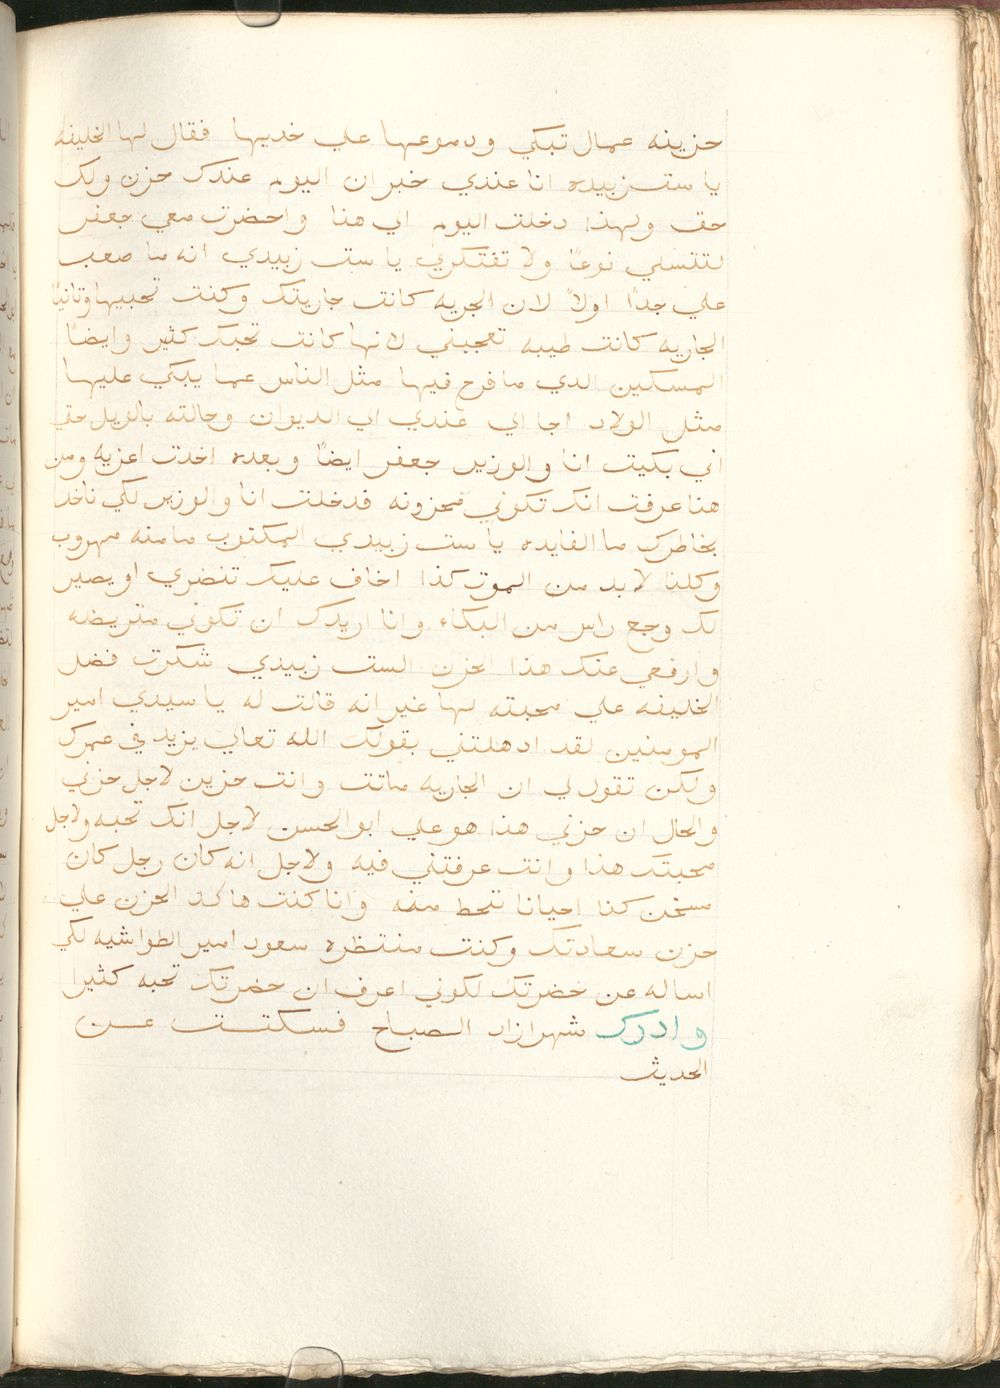 حزينه عمال تبكي ودموعها علي خديها فقال لها الخليفه
يا ست زبيده انا عندي خبر ان اليوم عندك حزن ولك
حق ولهذا دخلت اليوم الي هنا واحضرت معي جعفر
لتتسلي نوعًا ولا تفتكري يا ست زبيدي انه ما صعب
علي جدًا اولاً لان الجريه كانت جاريتك وكنت تحبيها وتانيًا
الجاريه كانت طيبه تعجبني لانها كانت تحبك كثير وايضًا
المسكين الدي ما فرح فيها مثل الناس عما يبكي عليها
مثل الولاد اجا الي عندي الي الديوان وحالته بالويل حتي
اني بكيت انا والوزير جعفر ايضًا وبعده اخدت اعزيه ومن
هنا عرفت انك تكوني محزونه فدخلت انا والوزير لكي ناخد
بخاطرك ما الفايده يا ست زبيدي المكتوب ما منه مهروب
وكلنا لا بد من الموت كذا اخاف عليك تنضري او يصير
لك وجع راس من البكاء وانا اريدك ان تكوني متريضه
وارفعي عنك هذا الحزن الست زبيدي شكرت فضل
الخليفه علي محبته لها غير انه قالت له يا سيدي امير
المومنين لقد ادهلتني بقولك الله تعالي يزيد في عمرك
ولكن تقول لي ان الجاريه ماتت وانت حزين لاجل حزني
والحال ان حزني هذا هو علي ابو الحسن لاجل انك تحبه ولاجل
محبتك هذا وانت عرفتني فيه ولاجل انه كان رجل كان
مسخن كنا احيانا نحط منه وانا كنت هاكله الحزن علي
حزن سعادتك وكنت منتظره سعود امير الطواشيه لكي
اساله عن حضرتك لكوني اعرف ان حضرتك تحبه كثيرا
وادرك شهرازاد الصباح فسكتت عن
الحديث